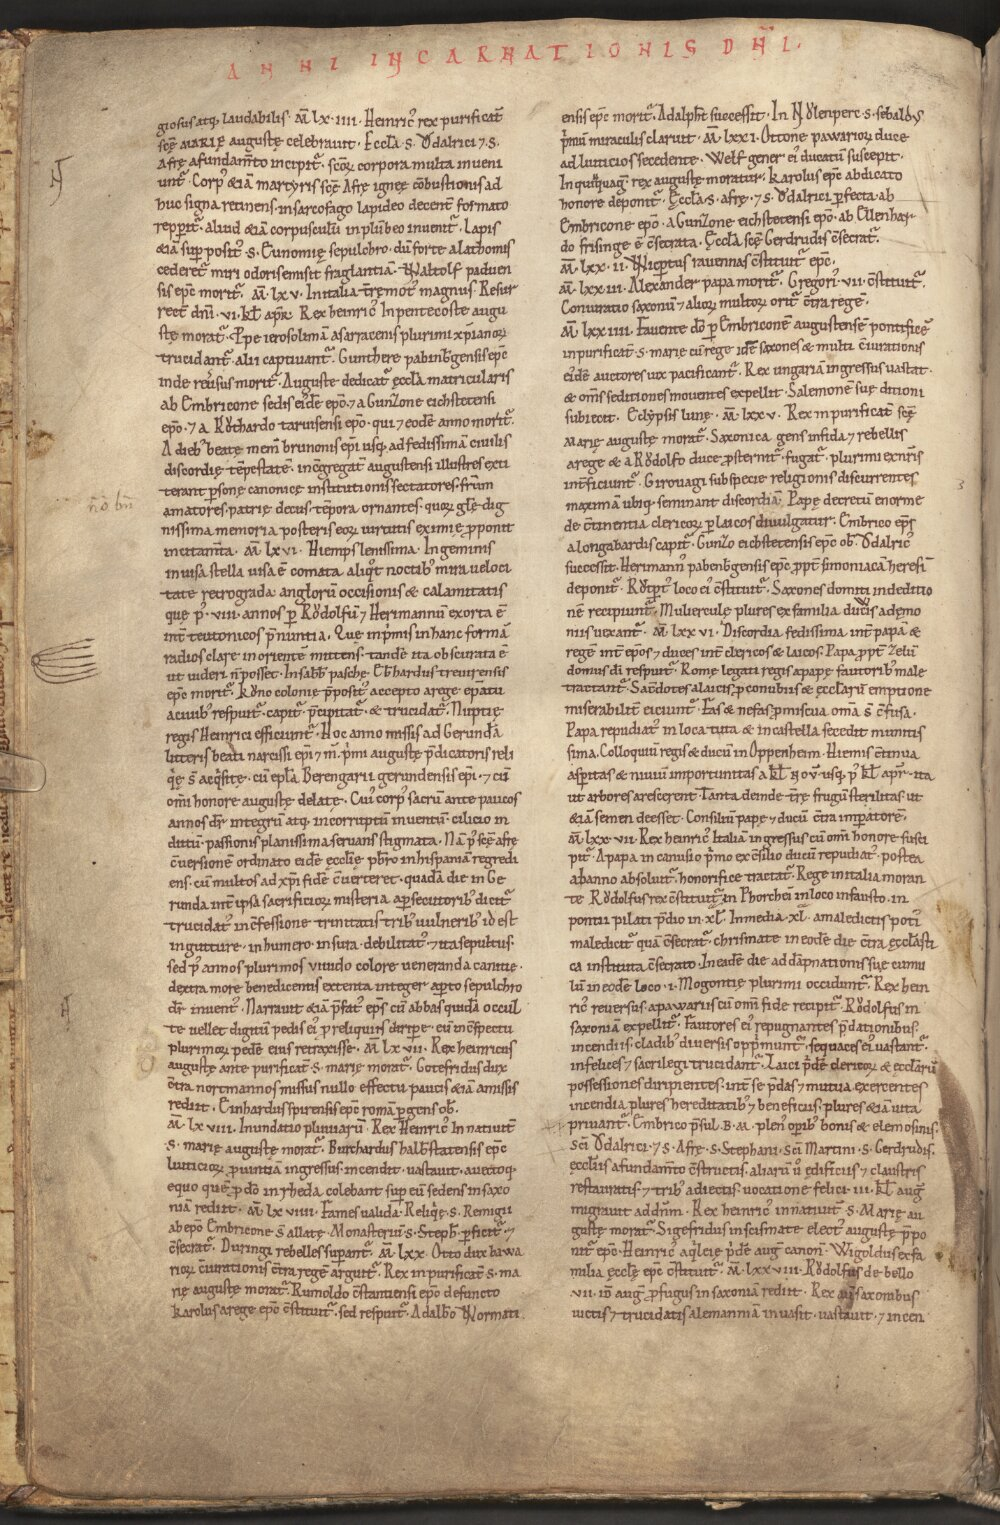 ANNI INCARNATIONIS DNI.
giosus atq; laudabilis. Am̄ lx. iiii. Heinric' rex purificat̄
scę MARIĘ augustę celebrauit. Eccl̄a. S. Ŏdalrici ⁊ S.
Afrę a fundam̄to incipit̄. scōꝝ corpora multa inueni
unt̄. Corp' &iā martyris scę Afrę ignę cōbustionis ad
huc signa retinens. in sarcofago lapideo decent̄ formato
repp̄it̄. aliud &iā corpusculū in plūbeo inuenit̄. Lapis
&iā sup̄posit' .S. Eunomię sepulchro. dū forte a lathomis
cederet̄ miri odoris emisit fraglantiā. Waltolf paduen
sis ep̄c morit̄. Am̄ lx v. In italia t̄ręmot' magnus. Resur
rect̄ dn̄i. vi. kl̄ apr̄. Rex heinric' In pentecoste augu
stę morat̄. P̄pe ierosolimā a sarracenis plurimi xp̄ianoꝝ
trucidant̄. alii captiuant̄. Gunthere pabinb̄gensis ep̄c
inde reūsus morit̄. Auguste dedicat̄ ęccl̄a matricularis
ab Embricone sedis ei'dē ep̄o. ⁊ a Gunzone eichstetensi
ep̄o. ⁊ a Rŏthardo taruisensi ep̄o. qui ⁊ eodē anno morit̄.
A dieb' beatę mem̄ brunonis ep̄i usq; ad fedissimā ciuilis
discordię tēpestatē. in c̄gregat̄ augustensi illustres exti
terant p̄sonę canonicę institutionis sectatores. fr̄um
amatores. patrię decus. tēpora ornantes. quoꝝ glę dig
nissima memoria posteris eoꝝ uirtutis eximię p̄ponit
incitam̄ta. Am̄ lx vi. Hiemps lenissima. In geminis
inuisa stella uisa ē comata aliq̄t noctib' mira ueloci
tate retrograda. angloꝝ occisionis & calamitatis
quę p' .viii. annos p̄ Rŏdolfū ⁊ Herimannū exorta ē
int̄ teutonicos p̄nuntia. Quę inp̄mis in hanc formā
radios clare in orientē mittens. tandē ita obscurata ē
ut uideri n̄ posset. In sabb̄ paschę. Cb̄hardus treuirensis
ep̄c morit̄. Kŏno colonię p̄posit' accepto a rege ep̄atu
a ciuib' respuit̄. capit̄. p̄cipitat̄. & trucidat̄. Nuptię
regis Heinrici efficiunt̄. Hoc anno missis ad Gerundā
litteris beati narcissi ep̄i ⁊ m̄. p̄mi augustę p̄dicatoris reli
q̄ę s̄ acq̄sitę. cū epl̄a Berengarii gerundensis ep̄i. ⁊ cū
om̄i honore augustę delatę. Cui' corp' sacrū ante paucos
annos dr̄ integrū atq; incorruptū inuentū. cilicio in
ditum. passionis planissima seruans stigmata. Nā p' scę afrę
c̄uersionē ordinato eidē ęcclię pb̄ro in hispaniā regredi
ens. cū multos ad xp̄i fidē c̄uerteret. quadā die in Ge
runda int̄ ipsa sacrificioꝝ misteria a p̄secutorib' dicit̄
trucidat' in c̄fessione trinitatis trib' uulnerib' id est
in gutture. in humero. in sura. debilitat' ⁊ ita sepultus.
sed p' annos plurimos uiuido colore ueneranda canitie.
dextra more benedicentis extenta integer ap̄to sepulchro
dr̄ inuent'. Narrauit &iā p̄fat' ep̄s cū abbas quidā occul
te uellet digitū pedis ei' p̄ reliquiis diripe. eū in c̄spectu
plurimoꝝ pedē eius retraxisse. Am̄ lx vii. Rex heinricus
auguste ante purificat̄ S. marię morat̄. Gotefridus dux
c̄tra nortmannos missus nullo effectu paucis &iā amissis
rediit. Einhardus spirensis ep̄c romā p̄gens ob̄.
Am̄ lx viii. Inundatio pluuiarū. Rex Heinric' In natiuit̄
S. marię augustę morat̄. Burchardus halb̄statensis ep̄c
luiticioꝝ p̄uintiā ingressus incendit. uastauit. auectoq;
equo quē p̄ dō in rheda colebant sup̄ eū sedens in saxo
niā rediit. Am̄ lx viiii. Fames ualida. Reliq̄ę. S. Remigii
ab ep̄o Embricone s̄ allatę. Monasteriū. S. Steph̄. p̄ficit̄. ⁊
c̄secrat̄. Duringi rebelles sup̄ant̄. Am̄ lxx. Otto dux bawa
rioꝝ c̄iurationis c̄tra regē arguit̄. Rex in purificat̄ S. ma
rię augustę morat̄. Rumoldo c̄stantiensi ep̄c defuncto
Karolus a rege ep̄c c̄stituit̄. sed respuit̄. Adalb̄o Wormati
n̄o bn̄
ensis ep̄c morit̄. Adalph̄t successit. In Nŏrenperc .S. sebaldus
p̄mū miraculis claruit. Am̄ lxxi. Ottone pawarioꝝ duce
ad luiticios secedente. Welf gener ei' ducatū suscepit.
In quīquaḡ rex augustę moratur. Karolus ep̄c abdicato
honore deponit̄. Ęccl̄a .S. afrę. ⁊ S. Ŏdalrici p̄fecta. ab
Embricone ep̄o. a Gunzone eichstetensi ep̄o. ab Ellenhar
do frisinge ē c̄secrata. Ęccl̄a scę Gerdrudis c̄secrat̄.
Am̄ lxx ii. Wicp̄tus rauennas c̄stituit̄ ep̄c.
Am̄ lxx iii. Alexander papa morit̄. Gregori' vii c̄stituit̄.
Coniuratio saxonū ⁊ alioꝝ multoꝝ orit̄ c̄tra regē.
Am̄ lxx iiii. Fauente dō p̄ Embriconē augustensē pontificē
in purificat̄ S. marię cū rege idē saxones & multi c̄iurationis
ei'dē auctores uix pacificant̄. Rex ungariā ingressus uastat.
& om̄s seditiones mouentes expellit. Salemonē suę ditioni
subiecit. Eclypsis lunę. Am̄ lxx v. Rex in purificat̄ scę
Marię augustę morat̄. Saxonica gens infida ⁊ rebellis
a rege & a Rŏdolfo duce p̄sternit̄. fugat̄. plurimi ex n̄ris
int̄ficiunt̄. Girouagi sub specie religionis discurrentes
maximā ubiq; seminant discordiā. Papę decretū enorme
de c̄tinentia clericoꝝ p̄ laicos diuulgatur. Embrico ep̄s
a longabardis capit̄. Gunzo eichstetensis ep̄c ob̄. Ŏdalric'
successit. Herimann' pabenb̄gensis ep̄c p̄pt̄ simoniacā heresī
deponit̄. Rŏtp̄t' loco ei' c̄stituit̄. Saxones domiti in deditio
nē recipiunt̄. Mulierculę plures ex familia diuīs a dęmo
niis uexant̄. Am̄ lxx vi. Discordia fedissima int̄ papā &
regē int̄ ep̄os ⁊ duces int̄ clericos & laicos. Papa p̄pt̄ zelū
domus dī respuit̄. Romę legati regis a papę fautorib' male
tractant̄. Sac̄dotes a laicis p̄ conubiis & ęccl̄arū emptione
miserabilit̄ eiciunt̄. Fas & nefas p̄miscua. om̄a s̄ c̄fusa.
Papa repudiat' in loca tuta & in castella secedit munitis
sima. Colloquiū regis & ducū in Oppenheim. Hiemis c̄tinua
asp̄itas & niuiū importunitas a kl̄ Nou̅. usq; p' kl̄ apr̄. ita
ut arbores arescerent. Tanta deinde t̄rę frugū sterilitas. ut
&iā semen deesset. Consiliū papę ⁊ ducū c̄tra imp̄atorē.
Am̄ lxx vii. Rex heinric' Italiā ingressus cū om̄i honore susci
pit̄. A papa in canusio p̄mo ex c̄silio ducū repudiat'. postea
a banno absolut̄. honorifice tractat̄. Rege in italia moran
te Rŏdolfus rex c̄stituit̄ in Phorcheī in loco infausto. in
pontii pilati p̄dio in xl̄. In media .xl̄. a maledictis poti'
maledicit̄ quā c̄secrat̄. chrismate in eodē die c̄tra ęccl̄asti
ca instituta c̄secrato. In eadē die ad dāpnationis suę cumu
lū in eodē loco .i. Mogontię plurimi occidunt̄. Rex hein
ric' reuersus. a pawariis cū om̄i fide recipit̄. Rŏdolfus in
saxoniā expellit̄. Fautores ei' repugnantes p̄dationibus.
incendiis. cladib' diuersis opp̄munt̄. sequaces ei' uastant̄.
infelices ⁊ sacrilegi trucidant̄. Laici p̄dē clericoꝝ & ęccl̄arū
possessiones diripientes. int̄ se p̄das ⁊ mutua exercentes
incendia plures hereditatib' ⁊ beneficiis. plures &iā uita
priuant̄. Embrico p̄sul .B.M. plen' op̄ib' bonis & elemosinis.
Sc̄i Ŏdalrici. ⁊ S. Afrę. S. Stephani. Sc̄i Martini. S. Gerdrudis.
ęccl̄iis a fundam̄to c̄structis. aliarū u̅ ędificiis ⁊ claustris
restauratis. ⁊ trib' adiectis. uocatione felici. iii. kl̄ aug̅
migrauit ad dn̄m. Rex heinric' in natiuit̄ S. Marię au
gustę morat̄. Sigefridus in scismate elect' augustę p̄po
nit̄ ep̄c. Heinric' aq̄leię p̄dē aug̅ canon̄. Wigoldus ex fa
milia ęccl̄ę ep̄c c̄stituit̄. Am̄ lxx viii. Rŏdolfus de bello
vii. id̄ aug̅ p̄fugus in saxoniā rediit. Rex
uictis ⁊ trucidatis alemanniā inuasit. uastauit. ⁊ incen